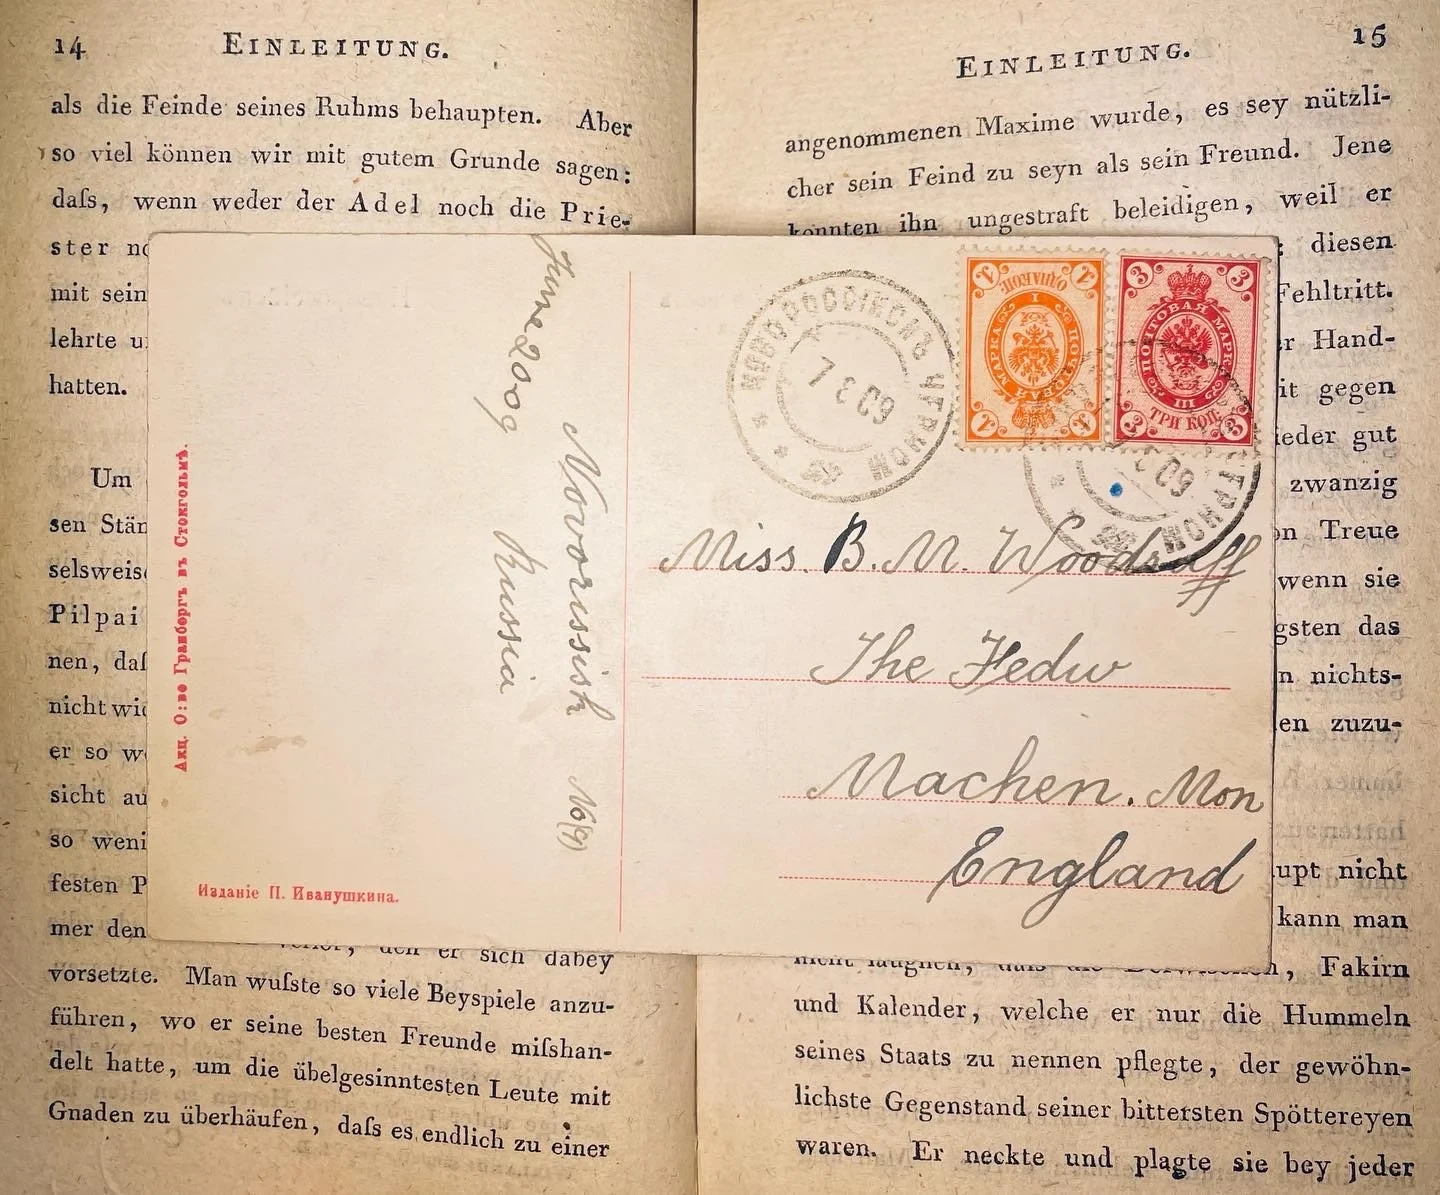 14 EINLEITUNG.
als die Feinde seines Ruhms behaupten. Aber
so viel können wir mit gutem Grunde sagen:
daſs, wenn weder der Adel noch die Prie-
ster
mit sein
lehrte
hatten.
Um
sen Stän
selsweis
Pilpai
nen, daſ
nicht
er so
sicht
so weni
festen P
mer den
den er sich dabey
vorsetzte. Man wuſste so viele Beyspiele anzu-
führen, wo er seine besten Freunde miſshan-
delt hatte, um die übelgesinntesten Leute mit
Gnaden zu überhäufen, daſs es endlich zu einer
EINLEITUNG. 15
angenommenen Maxime wurde, es sey nützli-
cher sein Feind zu seyn als sein Freund. Jene
konnten ihn ungestraft beleidigen, weil er
diesen
Fehltritt.
Hand-
gegen
gut
zwanzig
Treue
wenn sie
das
nichts-
zuzu-
nicht
kann man
nicht läugnen, daſs die Derwischen, Fakirn
und Kalender, welche er nur die Hummeln
seines Staats zu nennen pflegte, der gewöhn-
lichste Gegenstand seiner bittersten Spöttereyen
waren. Er neckte und plagte sie bey jeder
Акц. О:во Гранбергъ въ Стокгольмѣ.
Изданіе П. Иванушкина.
June 20 09
Novorissisk No(9)
Russia
НОВОРОССІЙСКЪ ЧЕРНОМ
7 6 09
1 МАРКА ПОЧТОВАЯ 1
I
1 ОДНА КОП. 1
3 ПОЧТОВАЯ МАРКА 3
III
3 ТРИ КОП. 3
09
ЧЕРНОМ
Miss. B. M. Woodruff
The Fedw
Machen. Mon
England